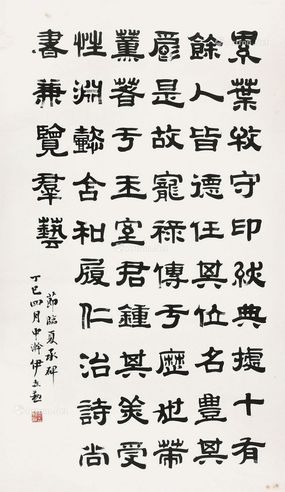 累葉牧守印紱典據十有
餘人皆德任其位名豐其
爵是故寵祿傳于歷世策
薰著于王室君鍾其美受
性淵懿含和履仁治詩尚
書兼覽羣藝
節臨夏承碑
丁巳四月中澣伊立勳